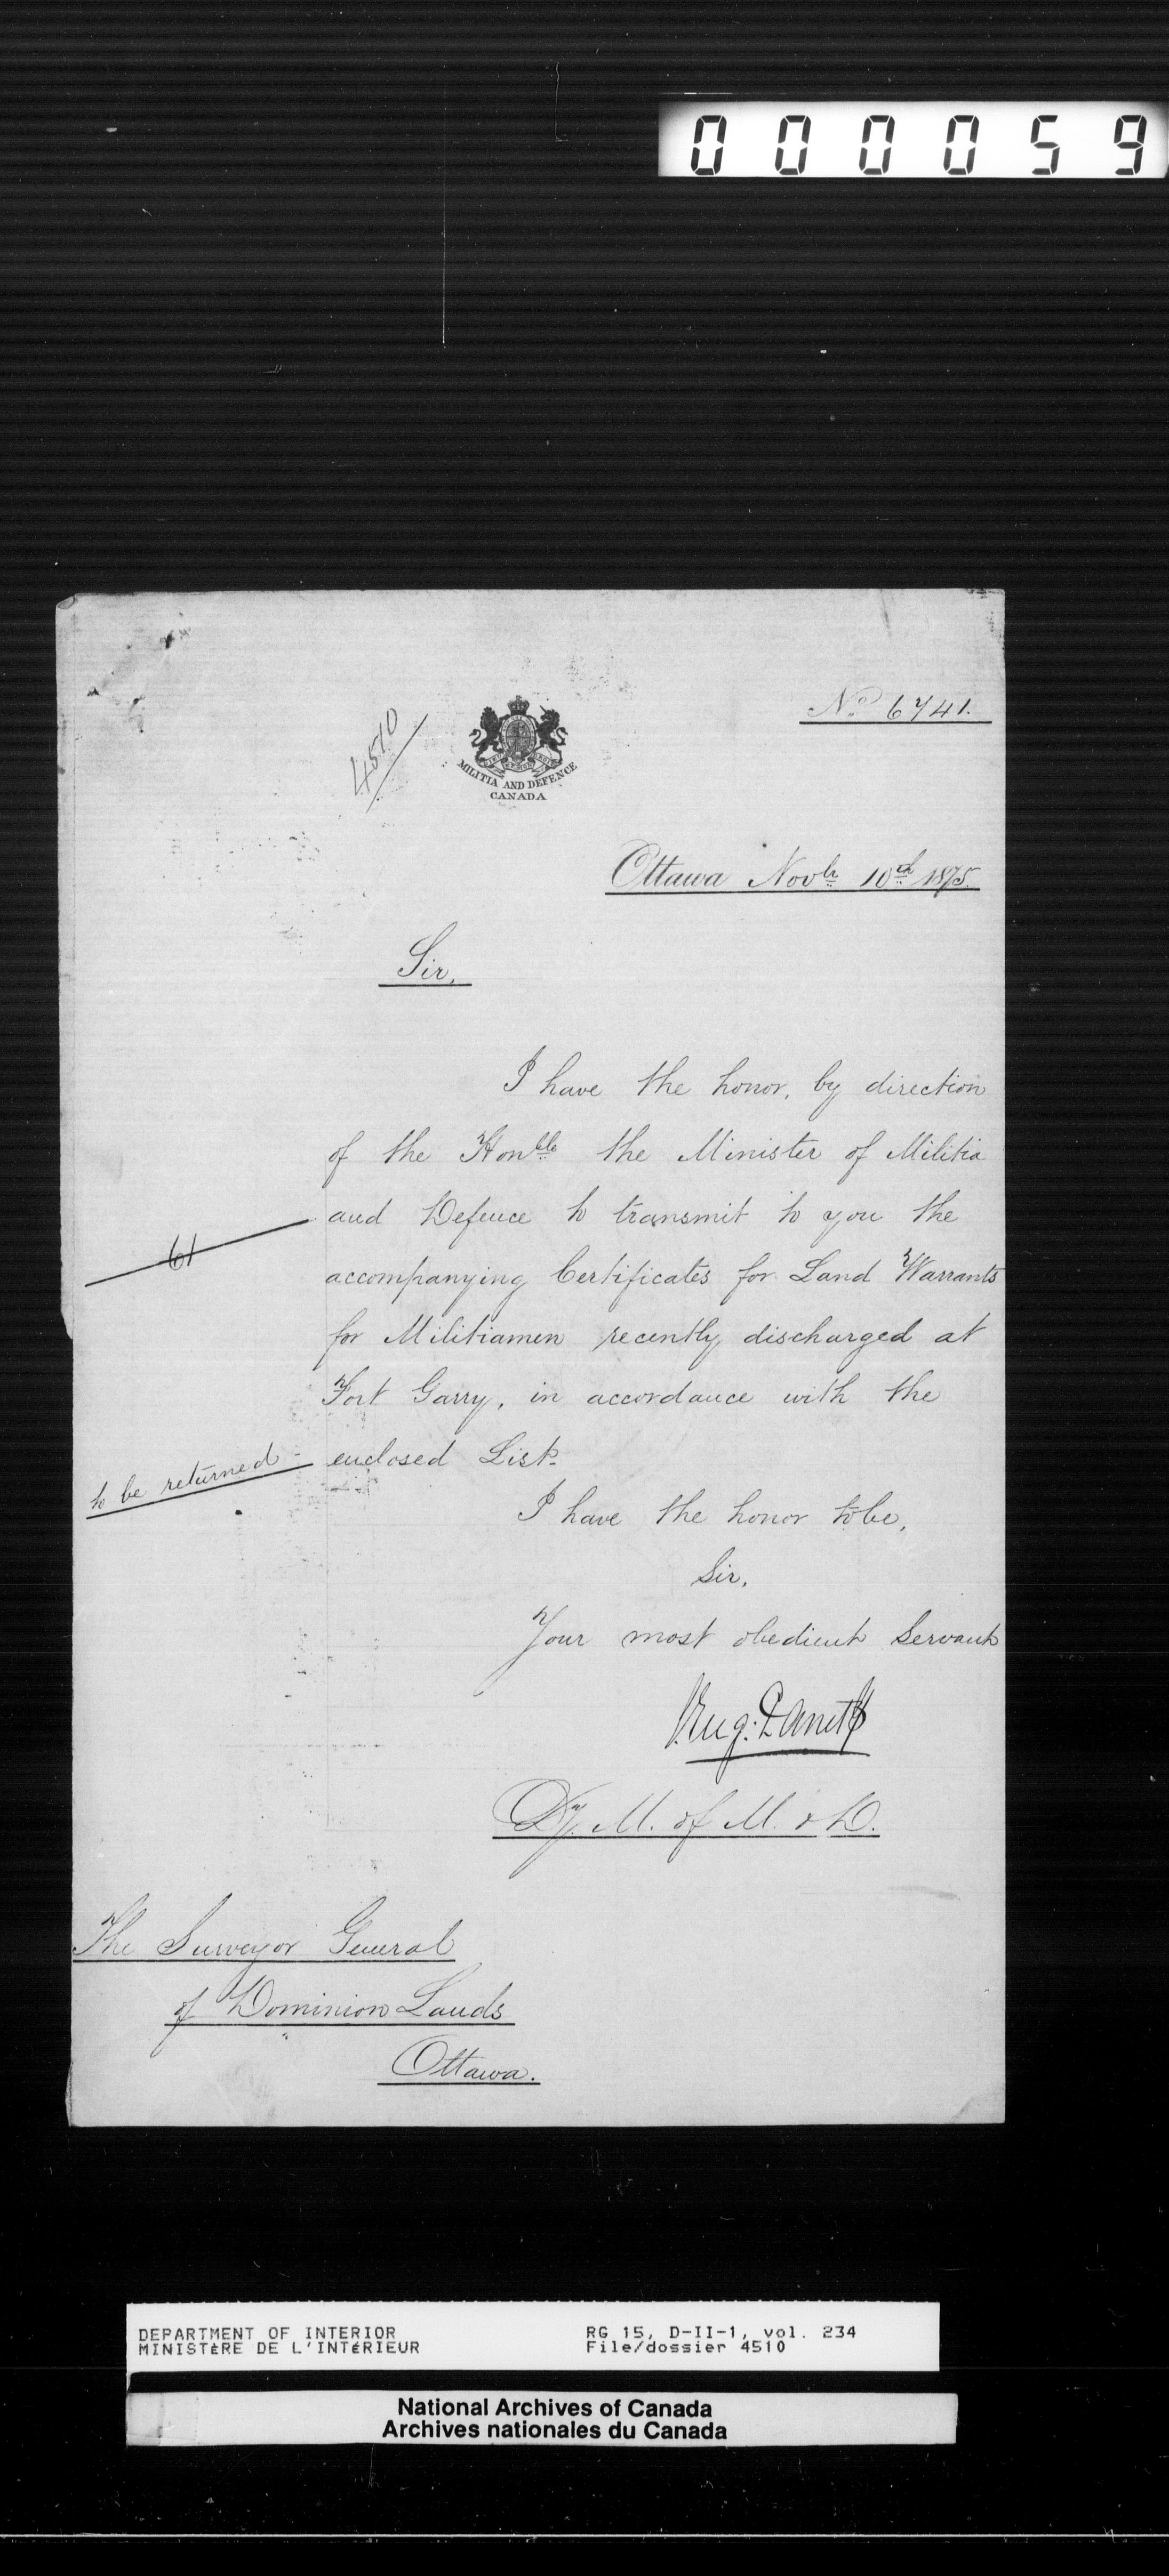 000059
No. 6741.
4510
MILITIA AND DEFENCE
CANADA
Ottawa Novbr 10th 1875.
Sir,
I have the honor, by direction
of the Honble the Minister of Militia
and Defence to transmit to you the
61
accompanying Certificates for Land Warrants
for Militiamen recently discharged at
Fort Garry, in accordance with the
to be returned - enclosed List.
I have the honor to be,
Sir,
Your most obedient Servant
Eug. Panet
Dy. M. of M. & D.
The Surveyor General
of Dominion Lands
Ottawa.
DEPARTMENT OF INTERIOR
MINISTÈRE DE L'INTÉRIEUR
RG 15, D-II-1, vol. 234
File/dossier 4510
National Archives of Canada
Archives nationales du Canada